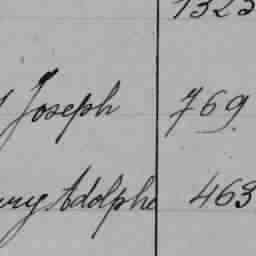 1323
Joseph 769
Adolphe 463